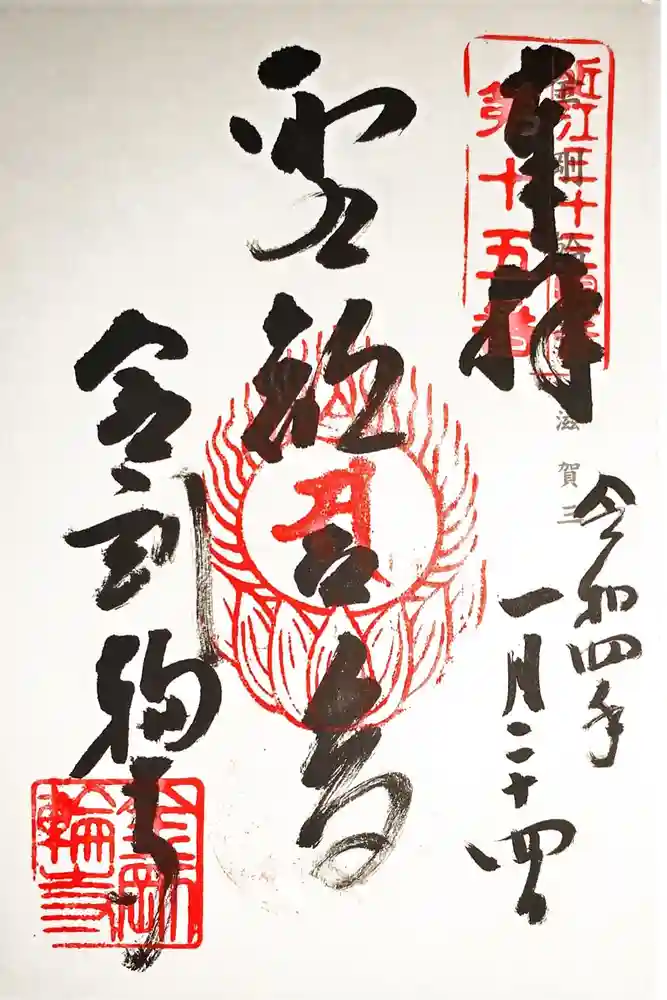 奉拝
近江三十三
第十五番
滋賀三
令和四年
一月二十四
聖観音
金剛輪寺
金剛輪寺